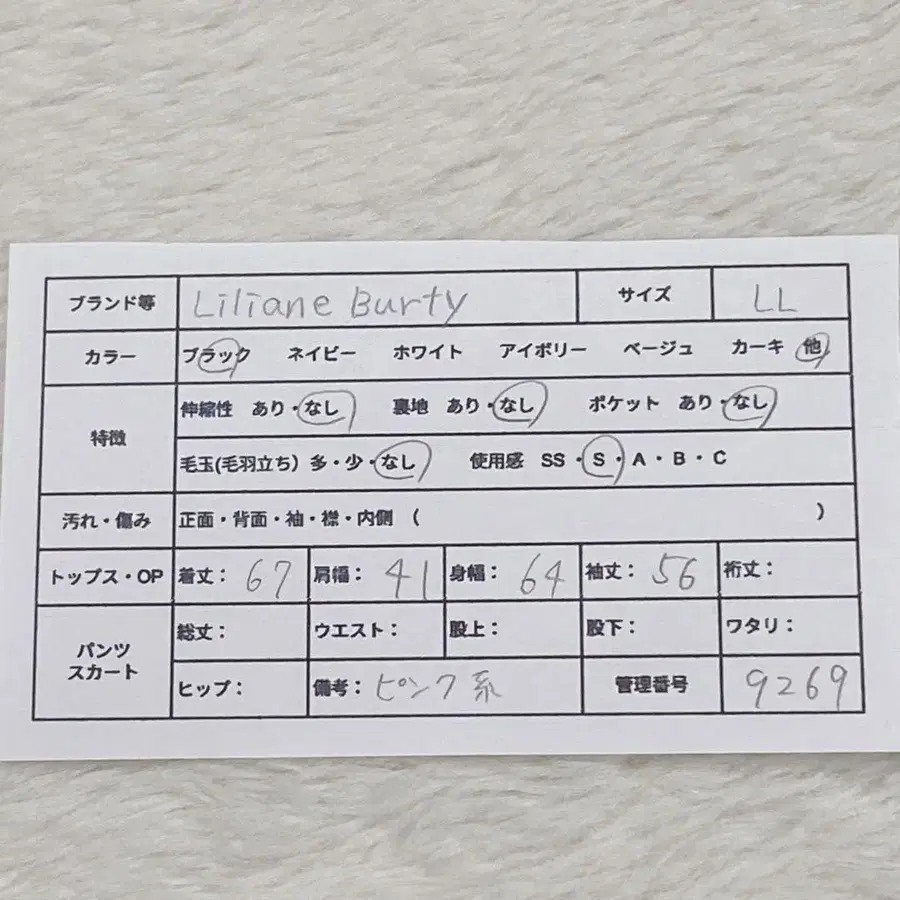 ブランド等 Liliane Burty サイズ LL
カラー ブラック ネイビー ホワイト アイボリー ベージュ カーキ 他
特徴 伸縮性 あり・なし 裏地 あり・なし ポケット あり・なし
毛玉(毛羽立ち) 多・少・なし 使用感 SS・S・A・B・C
汚れ・傷み 正面・背面・袖・襟・内側 ( )
トップス・OP 着丈: 67 肩幅: 41 身幅: 64 袖丈: 56 裄丈:
パンツ スカート 総丈: ウエスト: 股上: 股下: ワタリ:
ヒップ: 備考: ピンク系 管理番号 9269